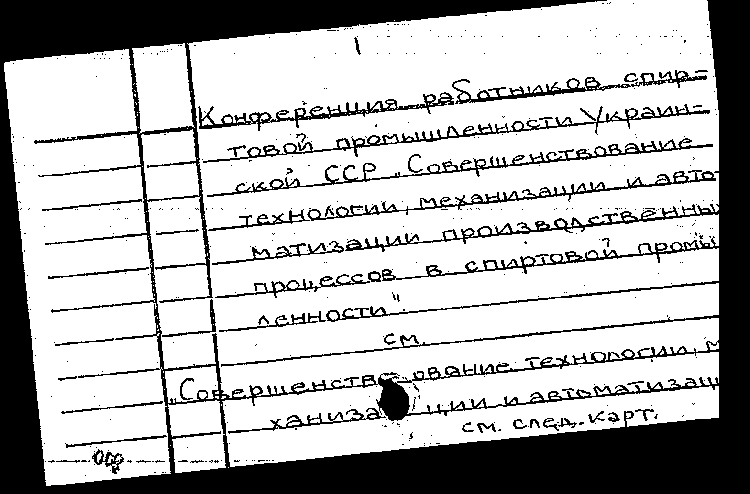 1
Конференция работников спир-
товой промышленности Украин-
ской ССР „Совершенствование
технологии, механизации и авто
матизации производственны
процессов в спиртовой промы
ленности".
см.
„Совершенств ование технологии, м
ханиза ции и автоматизац
см. след. карт.